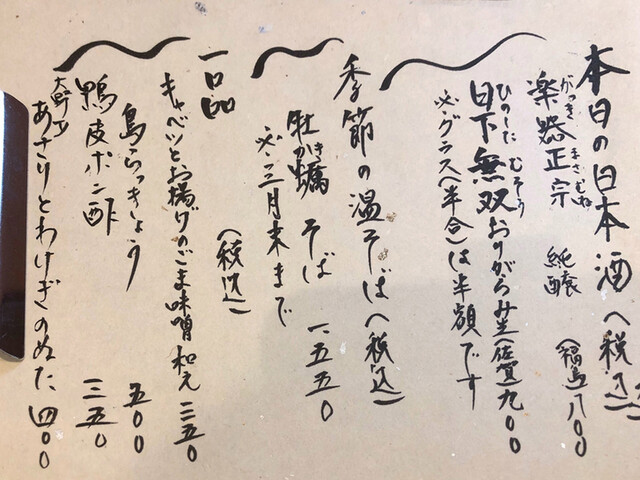 本日の日本酒（税込）
楽器正宗 純醸（福島）八〇〇
がっき まさむね
日下無双 おりがらみ生（佐賀）九〇〇
ひのした むそう
※グラス（半合）は半額です
季節の温そば（税込）
牡蠣そば 一、五五〇
かき
※三月末まで
一品（税込）
キャベツとお揚げのごま味噌和え 三五〇
島らっきょう 五〇〇
鴨皮ポン酢 三五〇
大野 あさりとわけぎのぬた 四〇〇